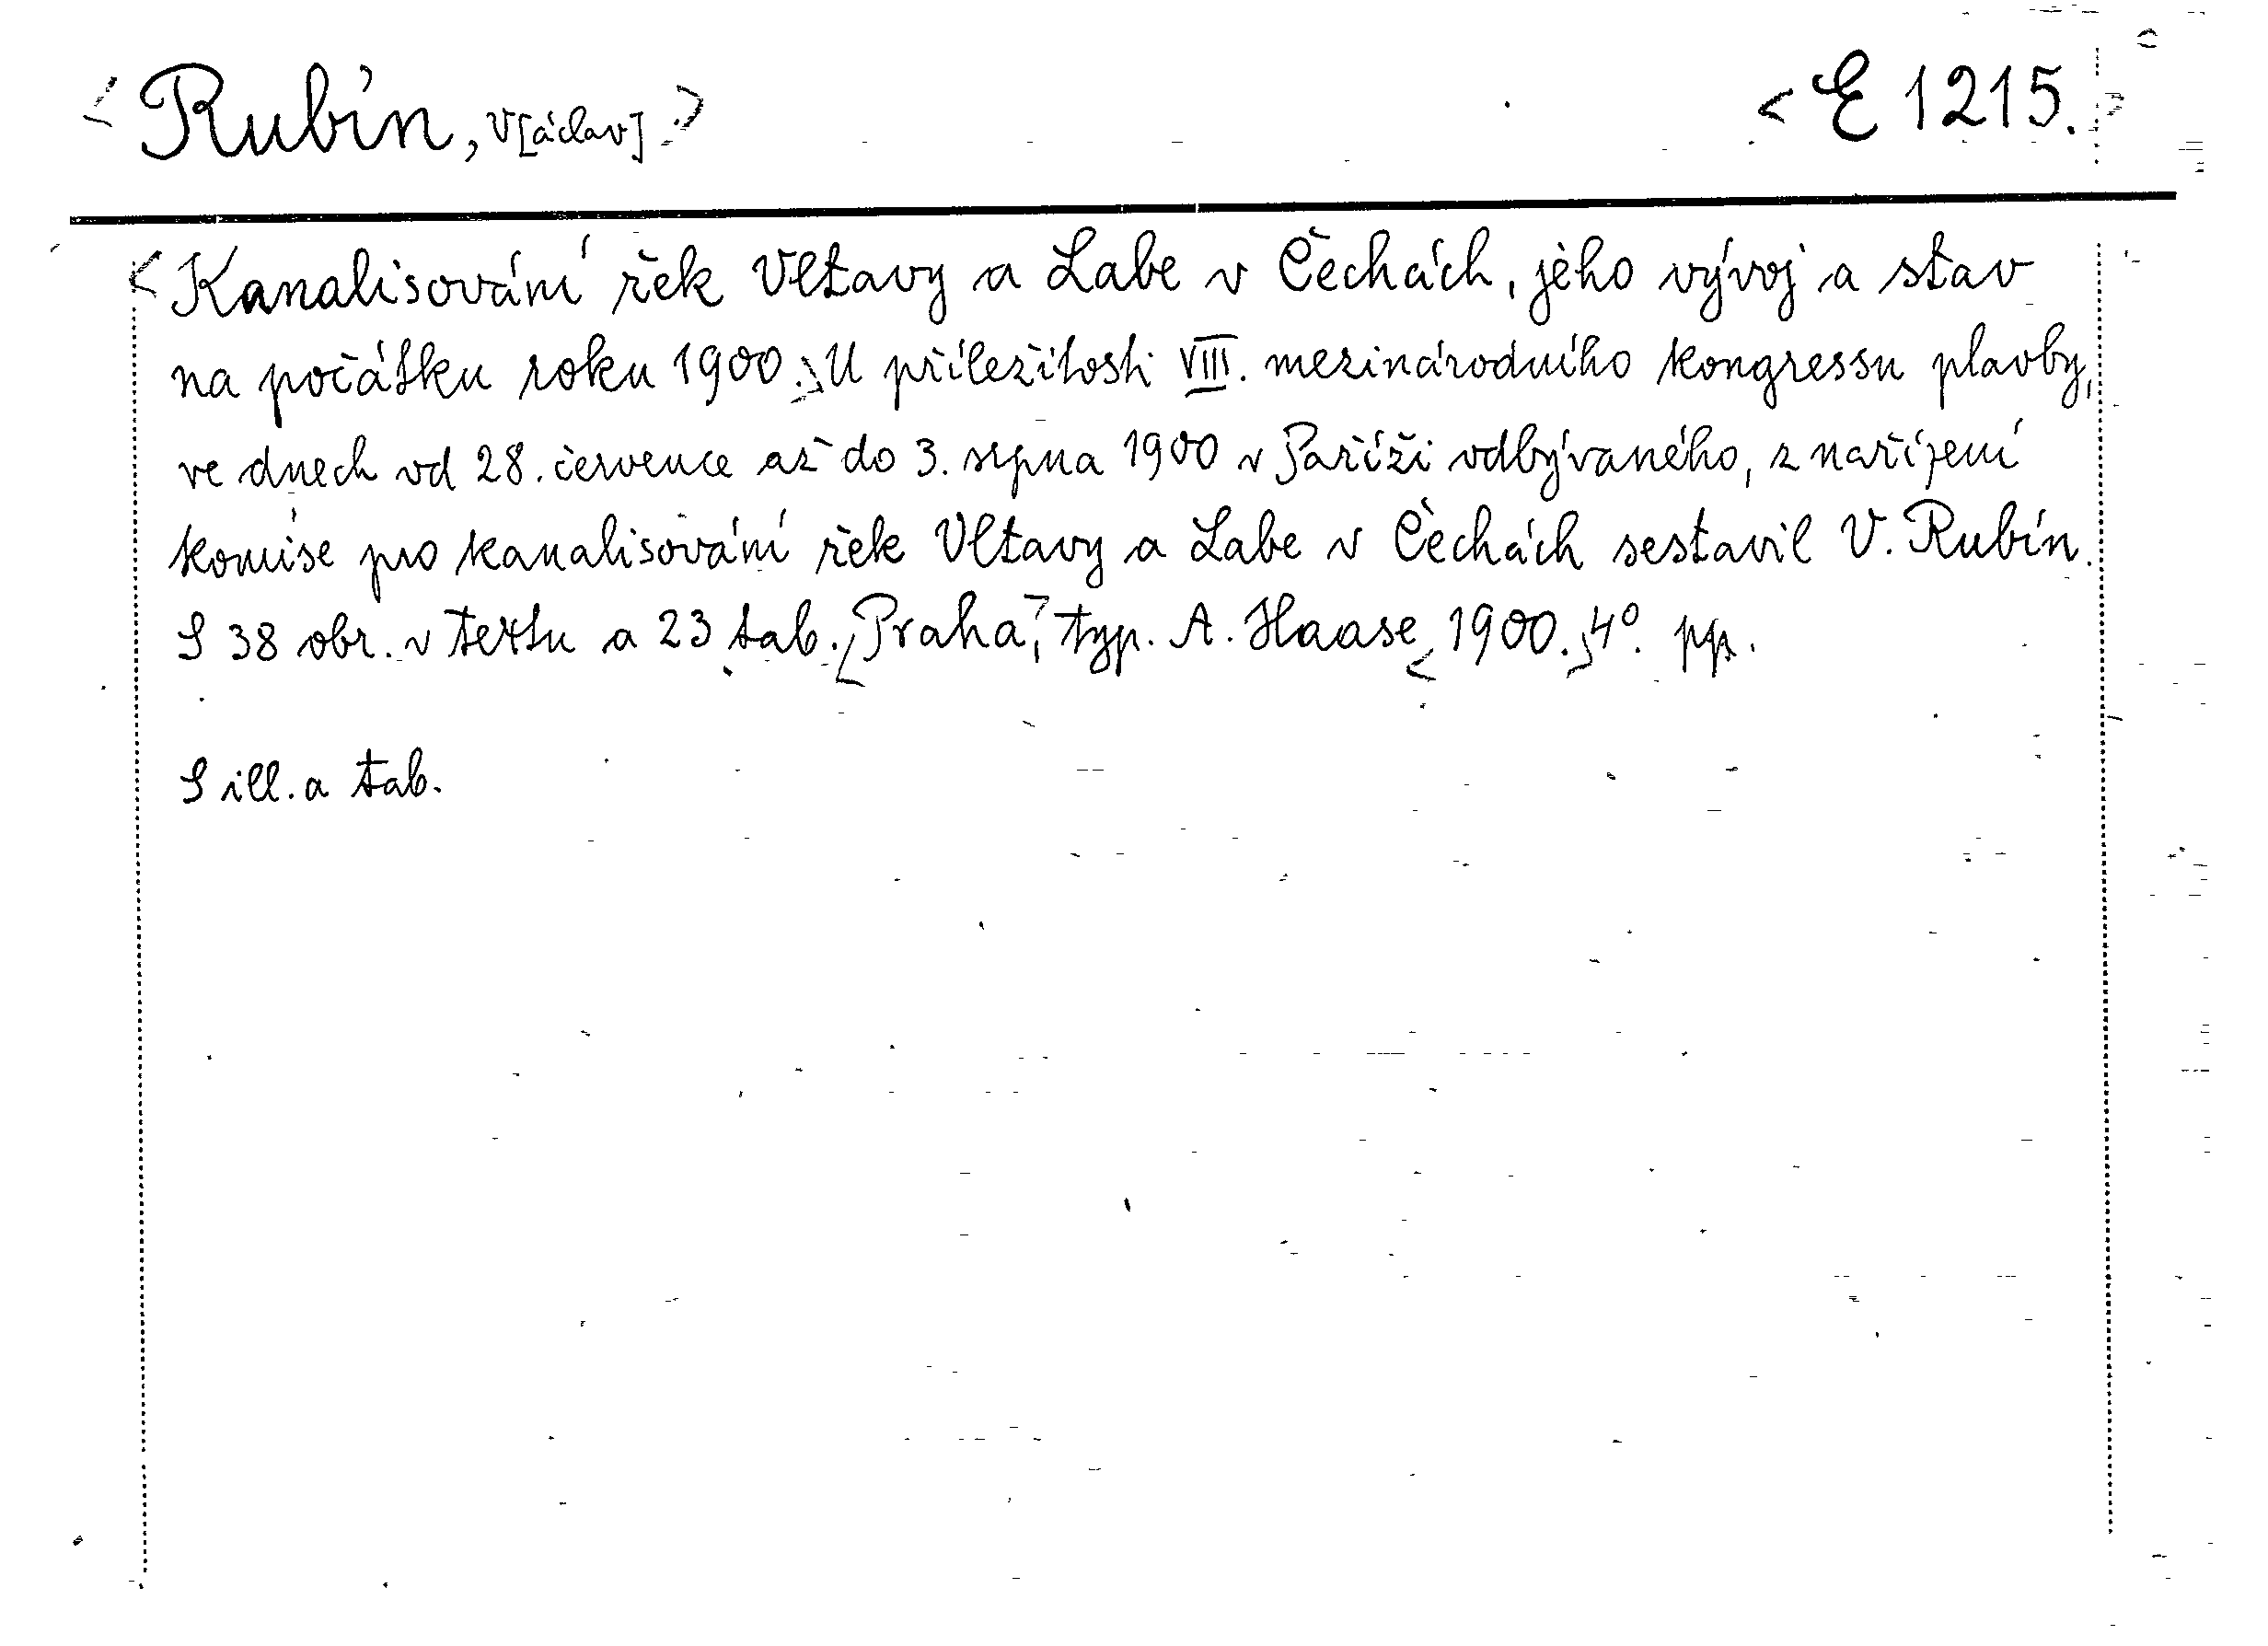 <Rubín, V[áclav]> <E 1215.>
<Kanalisování řek Vltavy a Labe v Čechách, jeho vývoj a stav
na počátku roku 1900.> U příležitosti VIII. mezinárodního kongressu plavby,
ve dnech od 28. července až do 3. srpna 1900 v Paříži odbývaného, z nařízení
komise pro kanalisování řek Vltavy a Labe v Čechách sestavil V. Rubín.
S 38 obr. v textu a 23 tab. <Praha,> typ. A. Haase < 1900.> 4º. pp.
S ill. a tab.